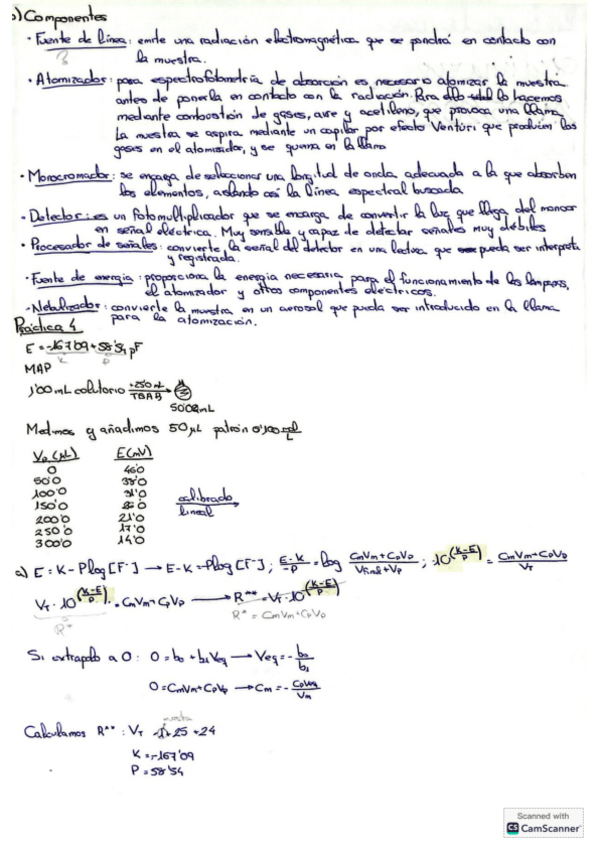 b) Componentes
· Fuente de línea: emite una radiación electromagnética que se pondrá en contacto con
?
la muestra.
· Atomizador: para espectrofotometría de absorción es necesario atomizar la muestra
antes de ponerla en contacto con la radiación. Para ello lo hacemos
mediante combustión de gases, aire y acetileno, que provoca una llama
La muestra se aspira mediante un capilar por efecto Venturi que producen los
gases en el atomizador, y se quema en la llama
· Monocromador: se encarga de seleccionar una longitud de onda adecuada a la que absorben
los elementos, aislando así la línea espectral buscada
· Detector: es un fotomultiplicador que se encarga de convertir la luz que llega del monocr
en señal eléctrica. Muy sensible y capaz de detectar señales muy débiles
· Procesador de señales: convierte la señal del detector en una lectura que pueda ser interpreta
y registrada.
· Fuente de energía: proporciona la energía necesaria para el funcionamiento de las lámparas,
el atomizador y otros componentes eléctricos.
· Nebulizador: convierte la muestra en un aerosol que pueda ser introducido en la llama
para la atomización.
Práctica 4
E = -167'09 + 58'54 pF
K P
MAP
1'00 mL colutorio +25'0 mL TISAB
50'00 mL
Medimos y añadimos 50 μL patrón 0'100
Vp (μL) E (mV)
0 46'0
50'0 38'0
100'0 31'0
150'0
200'0 21'0
250'0 17'0
300'0 14'0
calibrado lineal
a) E = K - P log [F⁻] → E-K = -P log [F⁻] ; (E-K)/-P = log (CmVm + CpVp)/(Vfinal + Vp) ; 10^((K-E)/P) = (CmVm + CpVp)/VT
VT · 10^((K-E)/P) = CmVm + CpVp → R** = VT · 10^((K-E)/P)
R* R* = CmVm + CpVp
Si extrapolo a 0 : 0 = b₀ + b₁Veq → Veq = - b₀/b₁
0 = CmVm + CpVp → Cm = - CpVeq/Vm
muestra
Calculamos R** : VT = 1 + 25 + 24
K = -167'09
P = 58'54
Scanned with
CS CamScanner